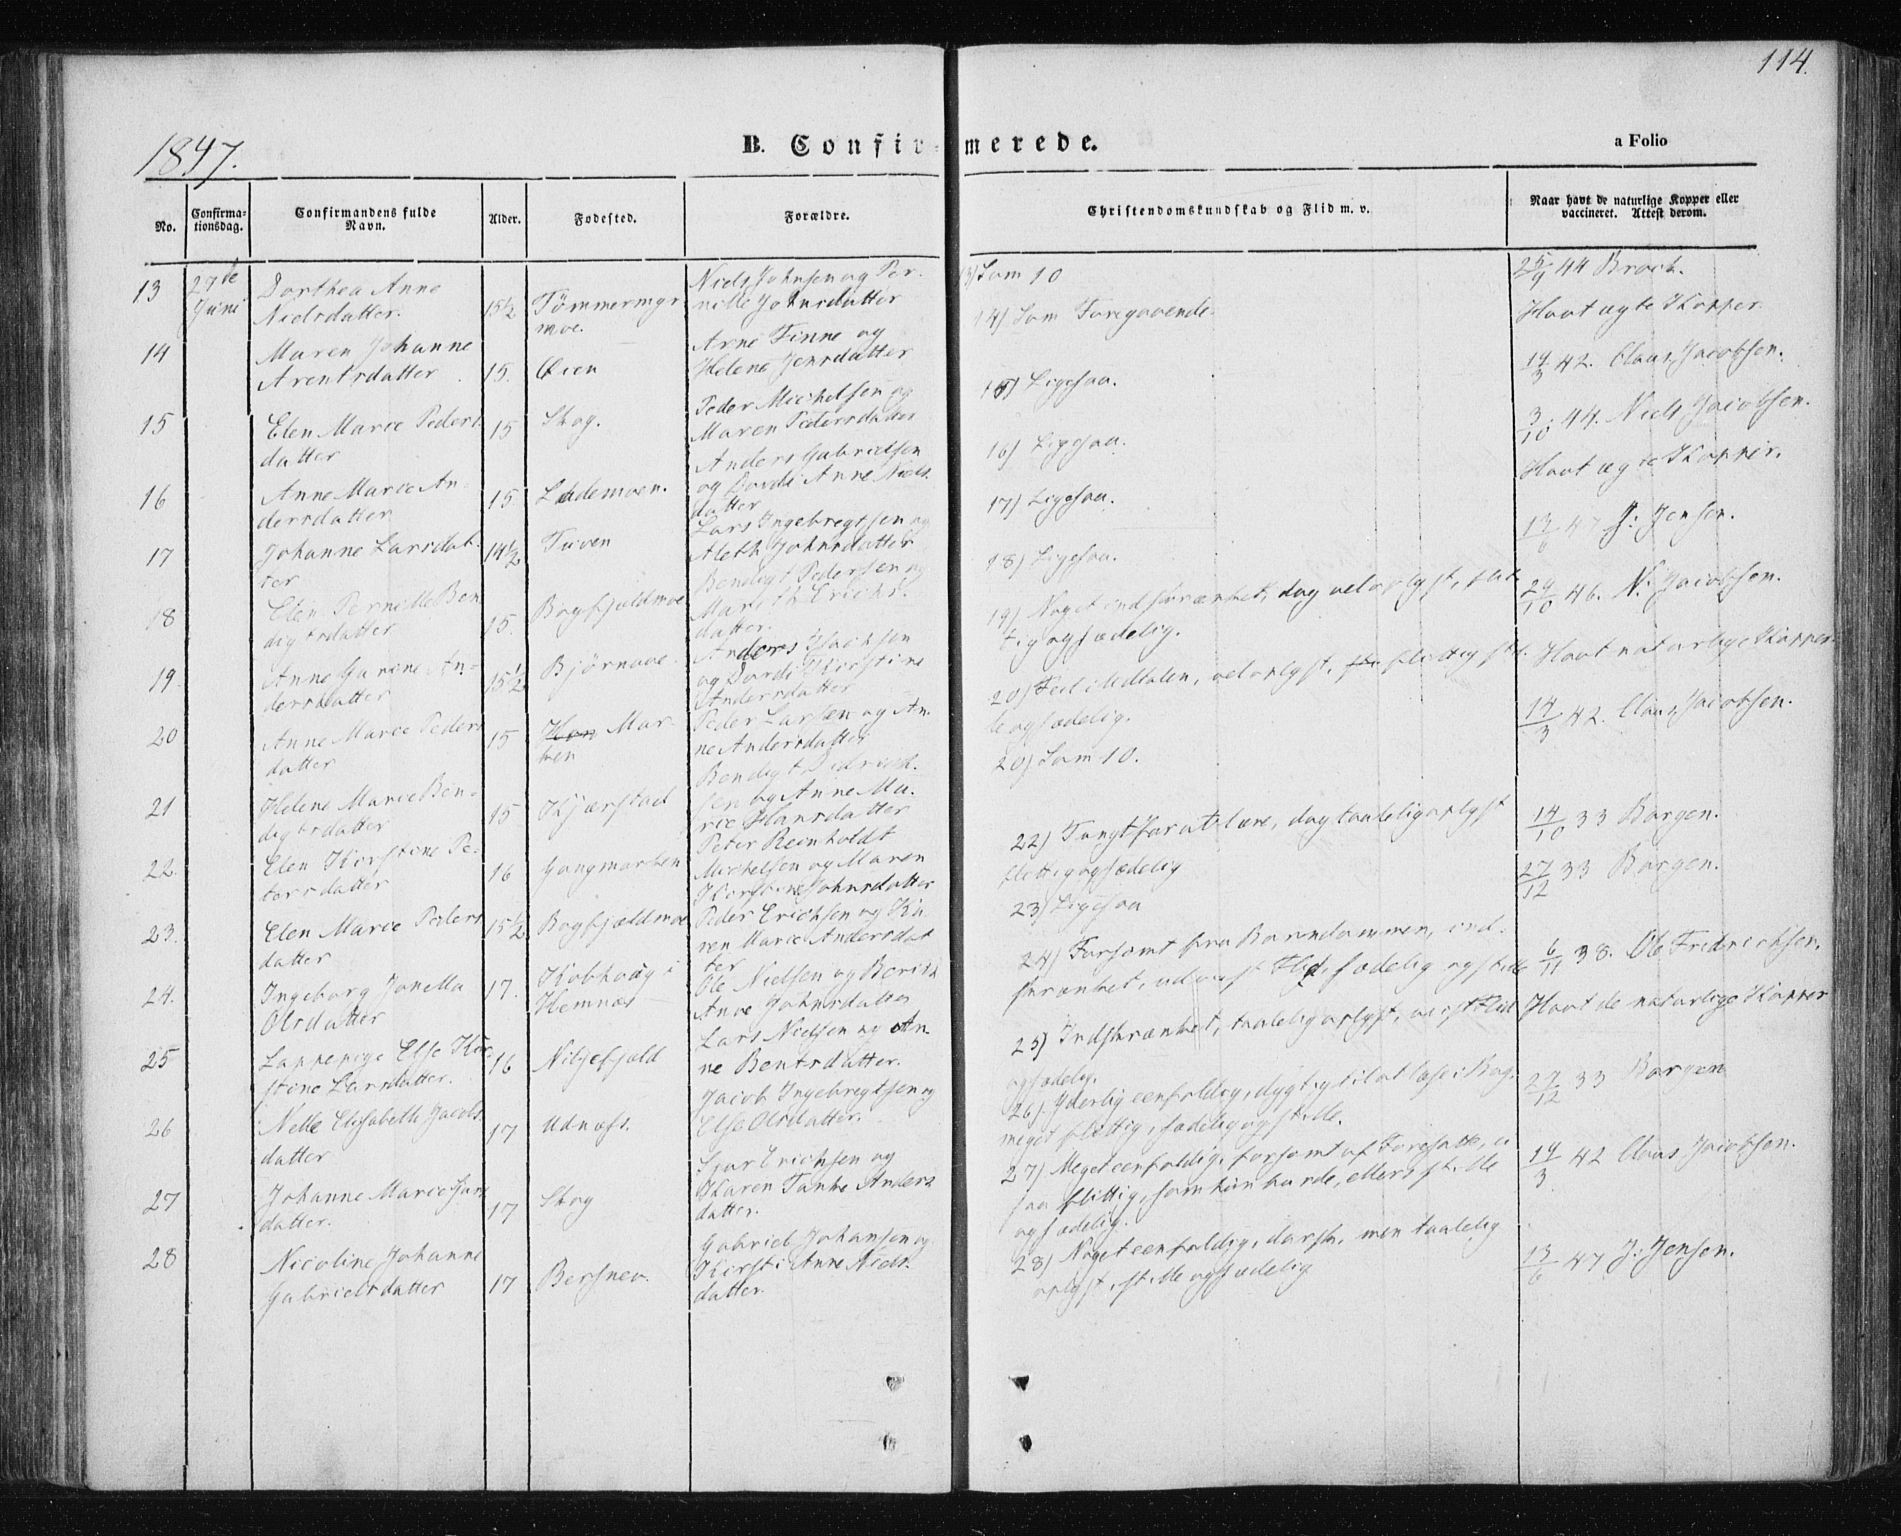 114.
1847.
B. Confirmerede.
a Folio
No.
Confirma-
tionsdag.
Confirmandens fulde
Navn.
Alder.
Fødested.
Forældre.
Christendomskundskab og Flid m. v.
Naar havt de naturlige Kopper eller
vaccineret. Attest derom.
13 27de Juni
Dorthea Anne
Nielsdatter.
15½
Tømmermyr
moe.
Niels Johnsen og Per-
nille Johnsdatter
13) Som 10
25/9 44 Broch.
14
Maren Johanne
Arentsdatter
15.
Øien
Arne Finne og
Helene Jensdatter
14) Som Foregaaende.
Havt ægte Kopper.
15
Elen Marie Peders
datter
15
Skog.
Peder Michelsen og
Maren Pedersdatter
15) Ligesaa.
14/3 42. Claus Jacobsen.
16
Anne Marie An-
dersdatter
15
Lademoen.
Anders Gabrielsen
og Dordi Anne Niels
datter
16) Ligesaa.
3/10 44. Niels Jacobsen.
17
Johanne Larsdat-
ter
14½
Tuven
Lars Ingebregtsen og
Aleth Johnsdatter
17) Ligesaa.
Havt ægte Kopper.
18
Elen Pernille Ben
digtsdatter
15.
Bagfjeldmoe
Bendigt Pedersen og
Mareth Erichs.
datter.
18) Ligesaa.
13/6 47 J: Jensen.
19
Anne Gurine An-
dersdatter
15½
Bjørnaae.
Anders Isachsen
og Dordi Kirstine
Andersdatter
19) Noget indskrænket, dog vel oplyst, flit
tig og sædelig.
24/10 46. N. Jacobsen.
20
Anne Marie Peders
datter
15
Mar-
ken
Peder Larsen og An-
ne Andersdatter
20) Feil i Udtalen, vel oplyst, flittig stil
le og sædelig.
Havt naturlige Kopper.
21
Helene Marie Ben-
digtsdatter
15
Kjærstad
Bendigt
sen og Anne Ma-
rie Hansdatter
20) Som 10.
14/3 42. Claus Jacobsen.
22.
Elen Kirstine Pe-
tersdatter
16
Gangmarken
Peter Reinholdt
Michelsen og Maren
Kirstine Johnsdatter
22) Tungt for at lære, dog taalelig oplyst
flittig og sædelig
14/10 33 Borgen.
23.
Elen Marie Peders
datter
15½
Bagfjeldmoe
Peder Erichsen og Ka-
ren Marie Andersdat
ter
23) Ligesaa
27/12 33 Borgen.
24.
Ingeborg Jonetta
Olsdatter
17.
Kobhoug i
Hemnæs
Ole Nielsen og Berith
Anne Johnsdatter
24) Forsømt fra Barndommen, ind-
skrænket, udviist Flid, sædelig og stille
6/11 38. Ole Fredrichsen.
25
Lappepige Else Kir
stine Larsdatter.
16
Lars Nielsen og An
ne Bentsdatter.
25) Indskrænket, taalelig oplyst, viist Flid
og sædelig.
Havt de naturlige Kopper
26
Nelle Elisabeth Jacobs
datter
17
Udnæs.
Jacob Ingebregtsen og
Else Olsdatter.
26) Yderlig eenfoldig, dygtig til at læse i Bog.
meget flittig, sædelig og stille.
27/12 33 Borgen
27
Johanne Marie Sjurs
datter.
17
Skog
Sjur Erichsen og
Karen Tanke Anders
datter.
27) Meget eenfoldig, forsømt af Foresatte, ei
saa flittig, som hun burde, ellers stille
og sædelig.
14/3 42 Claus Jacobsen.
28
Nicoline Johanne
Gabrielsdatter
17
Gabriel Johansen og
Kirsti Anne Niels-
datter.
28) Noget eenfoldig, dorsk, men taalelig
oplyst, stille og sædelig
13/6 47 J: Jensen.